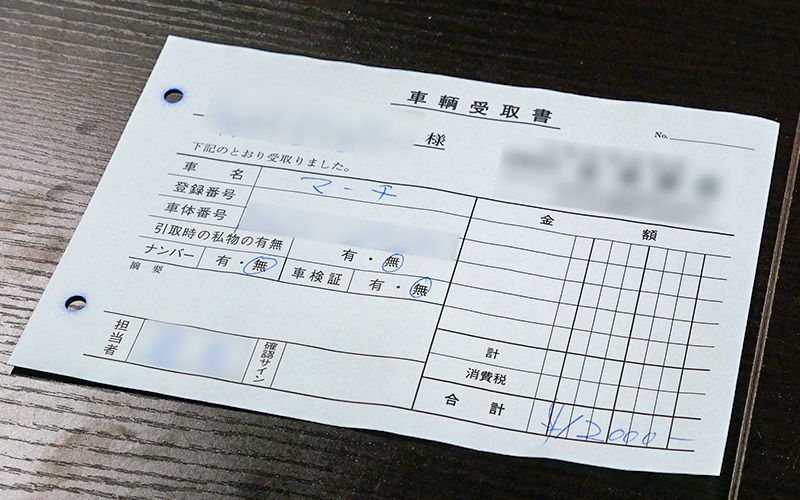 車輌受取書
No.
様
下記のとおり受取りました。
車名 マーチ
登録番号
車体番号
引取時の私物の有無 有・無
ナンバー 有・無 車検証 有・無
摘要
金額
計
消費税
合計 ¥12000-
担当者
確認サイン